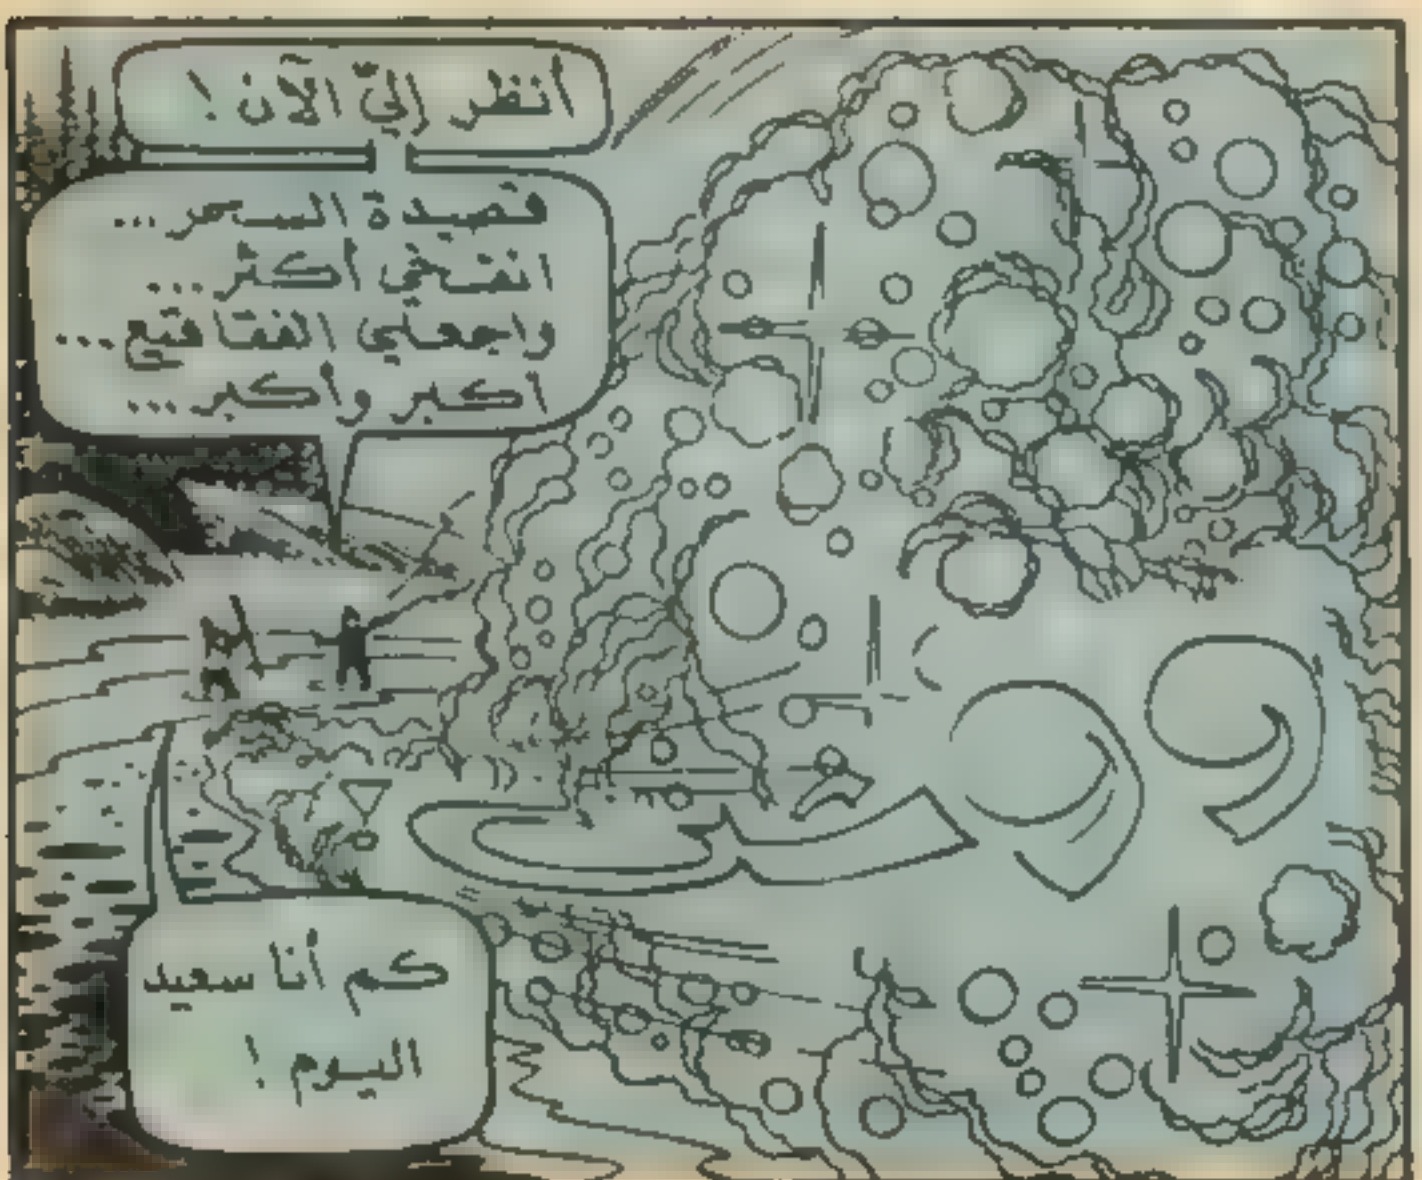 أنظر إليّ الآن !
قصيدة السحر...
انفخي أكثر...
واجعلي الفقاقيع...
أكبر وأكبر...
ووف
كم أنا سعيد
اليوم !